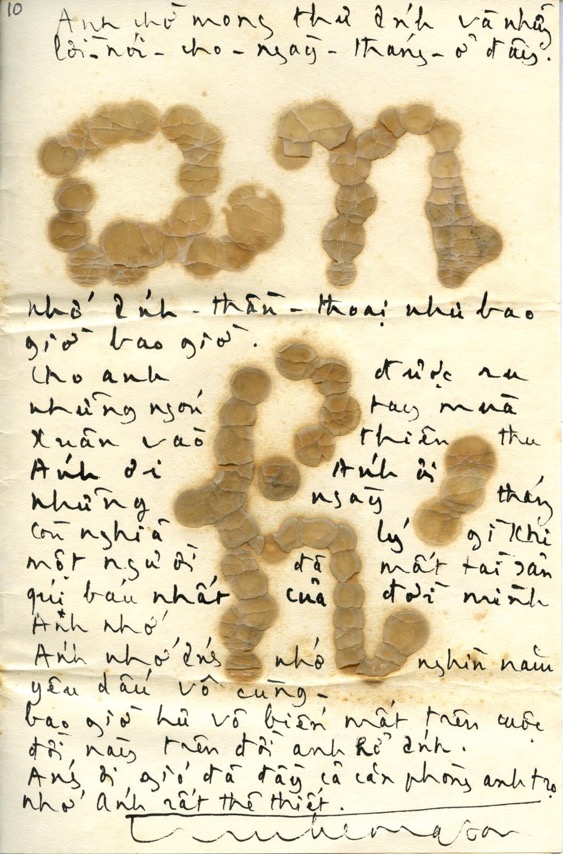 10
Anh chờ mong thư Ánh và những
lời-nói-cho-ngày-tháng-ở đây.
an
nhớ Ánh-thần-thoại như bao
giờ bao giờ.
h
Cho anh được ru
những ngón tay mùa
Xuân vào thiên thu
Ánh ơi Ánh ơi
những ngày tháng
còn nghĩa lý gì khi
một người đã mất tài sản
quí báu nhất của đời mình
Ánh nhớ
Anh nhớ Ánh nhớ nghìn năm
yêu dấu vô cùng-
bao giờ hư vô biến mất trên cuộc
đời này trên đời anh Ánh.
Ánh ơi gió đã đầy cả căn phòng anh trọ
nhớ Ánh rất thê thiết.
Trinhcongson